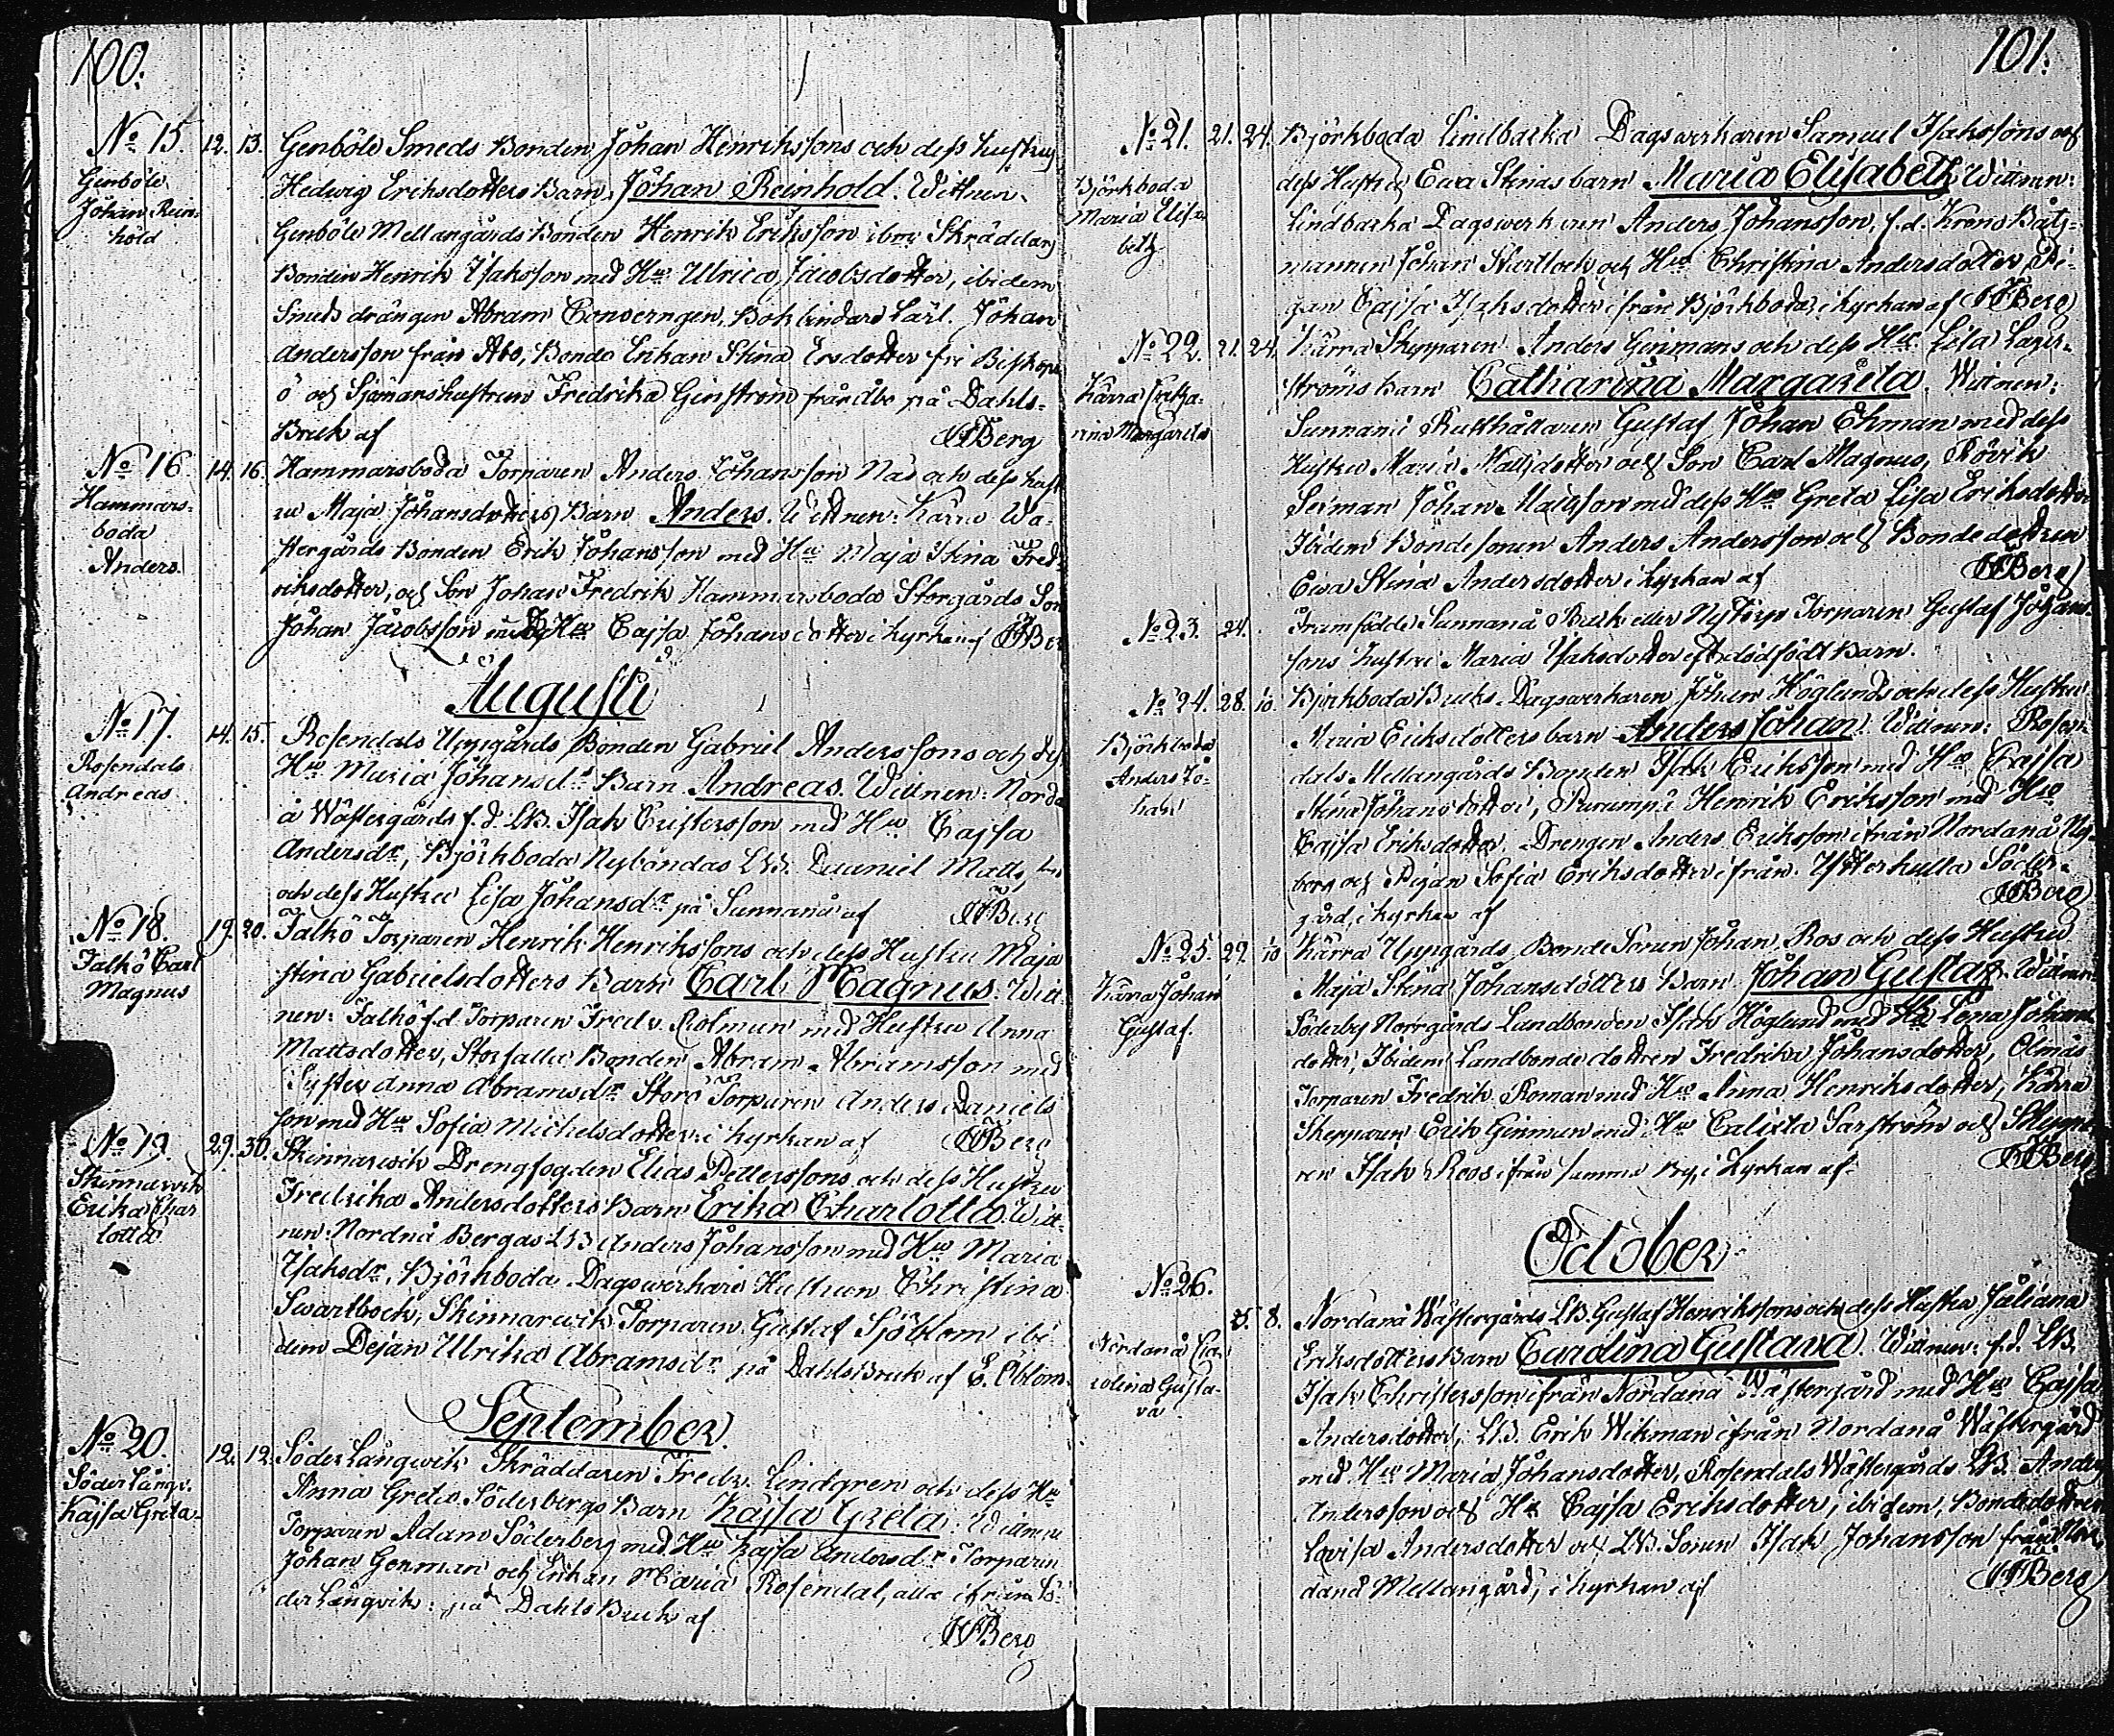 100.
No 15. 12. 13. Genböle Smeds Bonden Johan Henrikssons och dess hustru
Genböle Johan Reinhold
Hedwig Eriksdotters Barn, Johan Reinhold. Wittnen
Genböle Mellangårds Bonden Henrik Eriksson ibm Skräddars
Bonden Henrik Isaksson med Hu Ulrica Jacobsdotter, ibidem
Smeds drängen Abram, Bokbindare Lärl. Johan
Andersson från Åbo, Bonde Enkan Stina Ersdotter fri Biskops
ö och Sjömanshustrun Fredrika Ginström från Åbo på Dahls-
Bruk af FBerg
No 16. 14. 16. Hammarsboda Torparen Anders Johansson Nas och dess hust
Hammars-
boda
Anders.
ru Maja Johansdotters Barn Anders. Wittnen: Kärra Wä-
stergårds Bonden Erik Johansson med Hu Maja Stina Fred-
riksdotter, och Son Johan Fredrik Hammarsboda Storgårds Son
Johan Jacobsson med Hu Cajsa Johansdotter i kyrkan af FBer
Augusti
No 17. 14. 15. Rosendals Uppgårds Bonden Gabriel Anderssons och dess
Rosendals
Andreas
Hu Maria Johansdr Barn Andreas. Wittnen: Norda
å Wästergårds f.d. LB. Isak Cristersson med Hu Cajsa
Andersdr, Björkboda Nybondas LB. Daniel Matts
och dess Hustru Lisa Johansdr på Sunnanå af FBerg
No 18. 19. 20. Falkö Torparen Henrik Henrikssons och dess Hustru Maja
Falkö Carl
Magnus
stina Gabrielsdotters Barn Carl Magnus. Witt
nen: Falkö f.d. Torparen Fredr. Rolmun med Hustru Anna
Mattsdotter, Storfalla Bonden Abram Abramsson med
Syster Anna Abramsdr Storö Torparen Anders Daniels
son med Hu Sofia Michelsdotter i kyrkan af FBerg
No 19. 29. 30. Skinnarwik Drengfogden Elias Petterssons och dess Hustru
Skinnarwik
Erika Char
lotta
Fredrika Andersdotters Barn Erika Charlotta. Witt-
nen: Nordnå Bergas LB Anders Johansson med Hu Maria
Isaksdr, Björkboda Dagswerkare Hustrun Christina
Swartbock, Skinnarwik Torparen Gustaf Sjöblom ibi
dem Dejan Ulrika Abramsdr på Dahls Bruk af E. Öblom.
September.
No 20. 12. 12. Söder Långwik Skräddaren Fredr. Lindgren och dess Hu
Söder Långv.
Kajsa Greta.
Anna Greta Söderbergs Barn Kajsa Greta. Wittnen
Torparen Adam Söderberg med Hu Kajsa Andersdr Torparen
Johan Genman och Enkan Maria Rosendal, alla ifrån Sö-
der Långvik: på Dahls Bruk af
FBerg
101.
No 21. 21. 24. Björkboda Lindbacka Dagswerkaren Samuel Isakssons och
Björkboda
Maria Elisa
beth
dess Hustru Ewa Stinas barn Maria Elisabeth. Wittnen:
Lindbacka Dagswerkaren Anders Johansson, f.d. Krono Båtz-
mannen Johan och Hu Christina Andersdotter, Pi-
gan Cajsa Isaksdotter ifrån Björkboda, i kyrkan af FBerg
No 22. 21. 24. Kärra Skepparen Anders Ginmans och dess Hu Lisa Lager-
Kärra Catha-
rina Margareta
ströms barn Catharina Margareta. Wittnen:
Sunnanå Rusthållaren Gustaf Johan Öhman med dess
Hustru Maria Mattsdotter och Son Carl Magnus, Rövik
Seiman Johan Matsson med dess Hu Greta Lisa Eriksdotter
Ibidem Bondesonen Anders Andersson och Bondedottren
Ewa Stina Andersdotter i kyrkan af FBerg
No 23. 24. Framfödde Sunnanå Bruk eller Nytorp Torparen Gustaf Johans-
sons hustru Maria Isaksdotter ett dödfödt Barn.
No 24. 28. 10. Björkboda Bruks Dagswerkaren Johan Höglunds och dess Hustru
Björkboda
Anders Jo-
han
Maria Eriksdotters barn Anders Johan. Wittnen: Rosen-
dals Mellangårds Bonden Isak Eriksson med Hu Cajsa
Stina Johansdotter, Henrik Eriksson med Hu
Cajsa Eriksdotter, Drengen Anders Eriksson ifrån Nordanå Ny-
berg och Pigan Sofia Eriksdotter ifrån Ytterkulla Söder-
gård, i kyrkan af FBerg
No 25. 29. 10 Kärra Uppgårds Bonde Sonen Johan Ros och dess Hustru
Kärra Johan
Gustaf.
Maja Stina Johansdotters Barn Johan Gustaf. Wittnen
Söderby Norrgårds Landbonden Isak Höglund med Hu Lena Johans
dotter, Ibidem Landbonde dottren Fredrika Johansdotter, Ölmås
Torparen Fredrik Roman med Hu Anna Henriksdotter, Kärra
Skepparen Erik Ginman med Hu Calixta Sarström och Skeppa
ren Isak Roos ifrån samma By, i kyrkan af FBerg
October
No 26. 5. 8. Nordanå Wästergårds LB. Gustaf Henrikssons och dess Hustru Juliana
Nordanå Ca
rolina Gusta-
va
Eriksdotters Barn Carolina Gustava. Wittnen: f.d. LB.
Isak Christersson ifrån Nordanå Wästergård med Hu Cajsa
Andersdotter, LB. Erik Wikman ifrån Nordanå Wästergård
med Hu Maria Johansdotter, Rosendals Wästergårds LB. Anders
Andersson och Hu Cajsa Eriksdotter, ibidem, Bondedottren
Lovisa Andersdotter och LB. Sonen Isak Johansson från Nor
danå Mellangård, i kyrkan af FBerg